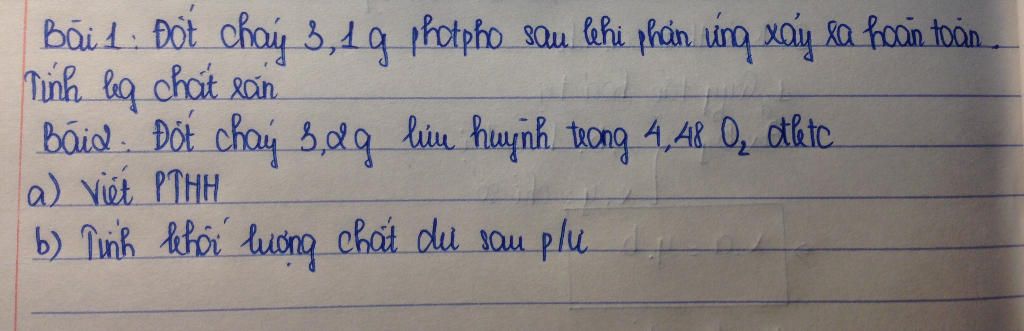 Bài 1: Đốt cháy 3,1g photpho sau khi phản ứng xảy ra hoàn toàn.
Tính kg chất rắn
Bài 2: Đốt cháy 3,2g lưu huỳnh trong 4,48 O₂ đktc
a) Viết PTHH
b) Tính khối lượng chất dư sau p/ư